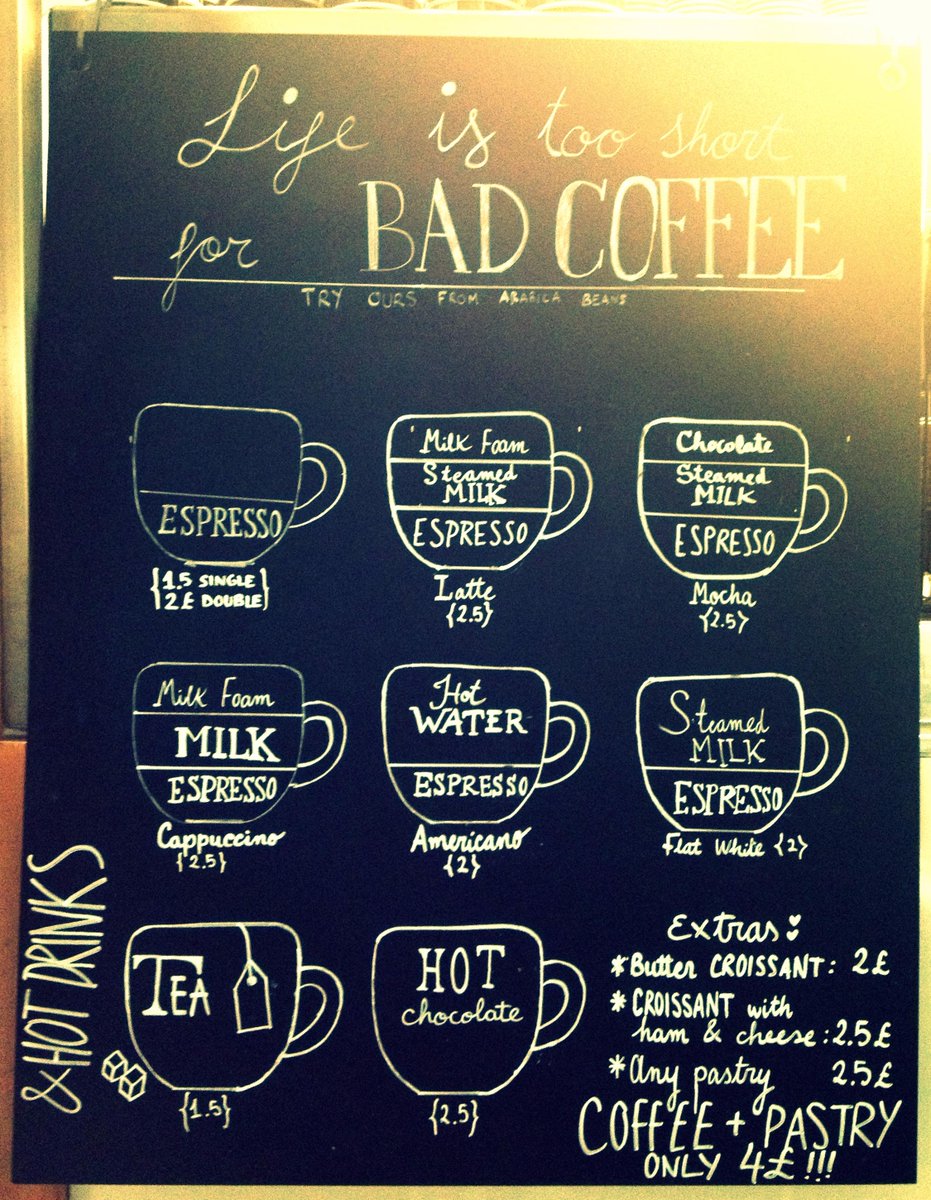 Life is too short
for BAD COFFEE
TRY OURS FROM ARABICA BEANS
ESPRESSO
{1.5 SINGLE}
{2£ DOUBLE}
Milk Foam
Steamed
MILK
ESPRESSO
Latte
{2.5}
Chocolate
Steamed
MILK
ESPRESSO
Mocha
{2.5}
Milk Foam
MILK
ESPRESSO
Cappuccino
{2.5}
Hot
WATER
ESPRESSO
Americano
{2}
Steamed
MILK
ESPRESSO
Flat White {2}
& HOT DRINKS
TEA
{1.5}
HOT
chocolate
{2.5}
Extras:
*Butter CROISSANT: 2£
*CROISSANT with
ham & cheese: 2.5£
*Any pastry 2.5£
COFFEE + PASTRY
ONLY 4£!!!